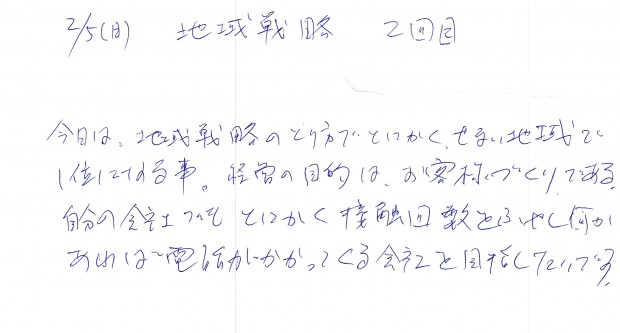 2/5(日) 地域戦略 2回目
今日は、地域戦略のとり方でとにかく、せまい地域で
1位になる事。経営の目的は、お客様づくりである。
自分の会社でも とにかく接触回数をふやし何か
あれば電話がかかってくる会社を目指したいです。